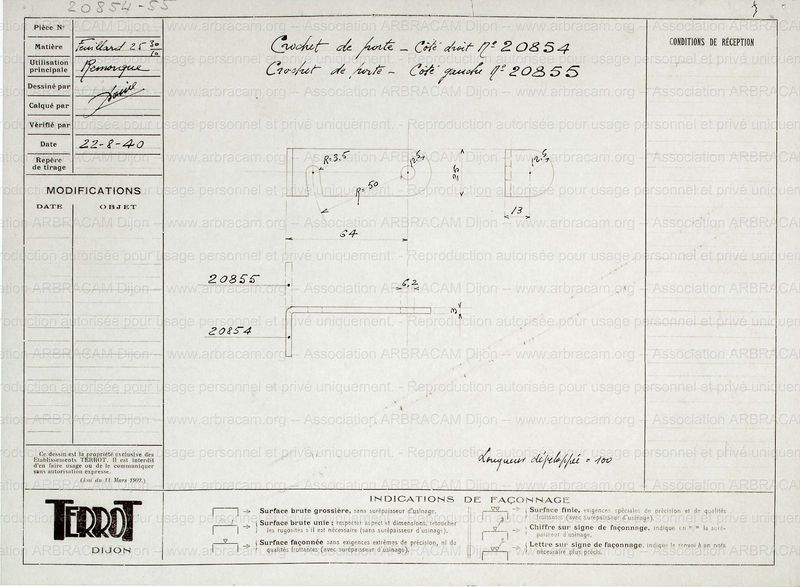 20854-55
Pièce N°
Matière Feuillard 25 30/10
Utilisation principale Remorque
Dessiné par
Calqué par
Vérifié par
Date 22-8-40
Repère de tirage
MODIFICATIONS
DATE OBJET
Crochet de porte - Côté droit N° 20854
Crochet de porte - Côté gauche N° 20855
CONDITIONS DE RÉCEPTION
R=3.5
R=50
13
64
20855
6,2
20854
Longueur développée = 100
Ce dessin est la propriété exclusive des
Etablissements TERROT. Il est interdit
d'en faire usage ou de le communiquer
sans autorisation expresse.
(Loi du 11 Mars 1902.)
TERROT
DIJON
INDICATIONS DE FAÇONNAGE
Surface brute grossière, sans surépaisseur d'usinage.
Surface brute unie : respecter aspect et dimensions, retoucher
les rugosités s'il est nécessaire (sans surépaisseur d'usinage).
Surface façonnée sans exigences extrêmes de précision, ni de
qualités frottantes (avec surépaisseur d'usinage).
Surface finie, exigences spéciales de précision et de qualités
frottantes (avec surépaisseur d'usinage).
Chiffre sur signe de façonnage, indique en m/m la surépaisseur
d'usinage.
Lettre sur signe de façonnage, indique le renvoi à un nota
nécessaire plus précis.
www.arbracam.org -- Association ARBRACAM Dijon --
Reproduction autorisée pour usage personnel et privé uniquement.